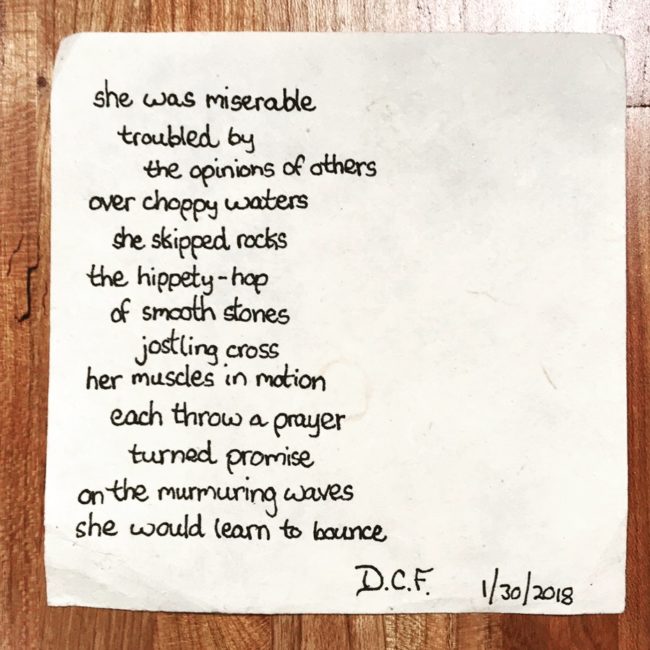 she was miserable
troubled by
the opinions of others
over choppy waters
she skipped rocks
the hippety-hop
of smooth stones
jostling cross
her muscles in motion
each throw a prayer
turned promise
on the murmuring waves
she would learn to bounce
D.C.F. 1/30/2018